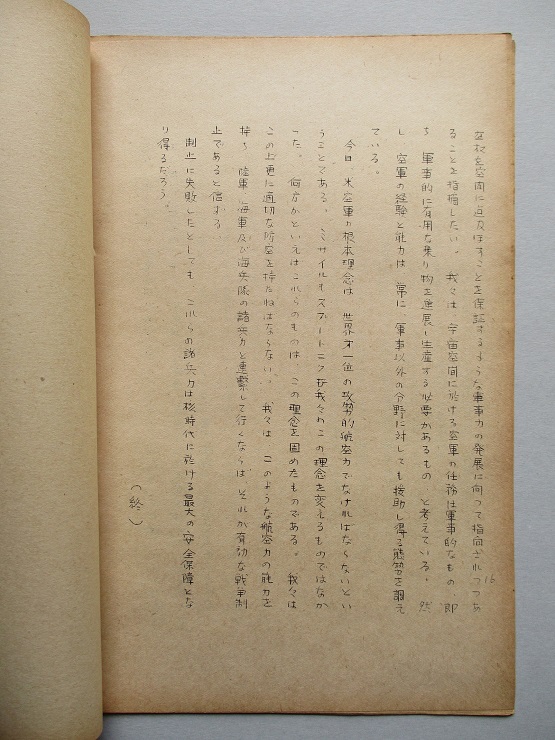 を空間に迄及ぼすことを保証するような軍事力の発展に向って指向されつつあ
ることを指摘したい。我々は、宇宙空間に於ける空軍の任務は軍事的なもの、即
ち 軍事的に有用な乗り物を進展し生産する必要があるもの と考えている。然
し 空軍の経験と能力は 常に 軍事以外の分野に対しても援助し得る態勢を調え
ている。
今日、米空軍の根本理念は 世界第一位の攻勢的航空力でなければならないとい
うことである。ミサイルもスプートニクも我々のこの理念を変えるものではなか
った。何方かといえばこれらのものは この理念を固めたものである。我々は
この上更に適切な防空を持たねばならない。我々は このような航空力の能力を
持ち 陸軍、海軍及び海兵隊の諸兵力と連繋して行くならば それが有効な戦争制
止であると信ずる
制止に失敗したとしても これらの諸兵力は核時代に於ける最大の安全保障とな
り得るだろう。
(終)
16